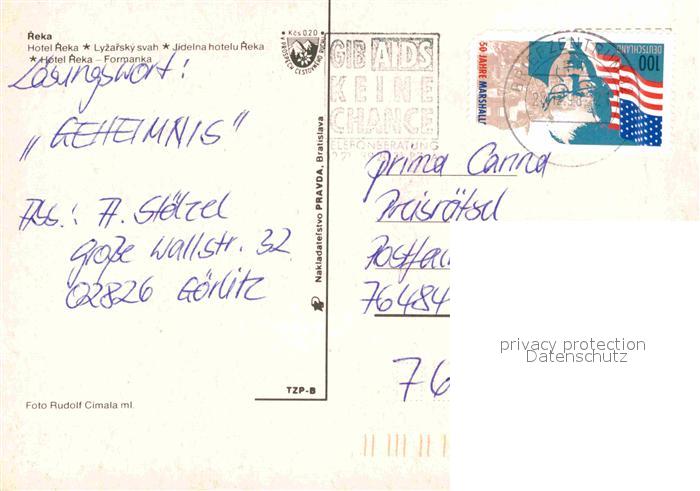 Řeka
Hotel Řeka ★ Lyžařský svah ★ Jídelna hotelu Řeka
★ Hotel Řeka – Formanka
Lösungswort:
„GEHEIMNIS"
Abs.: A. Stölzel
große Wallstr. 32
02826 Görlitz
Foto Rudolf Cimala ml.
Nakladateľstvo PRAVDA, Bratislava
TZP-B
Kčs 0,20
GIB AIDS
KEINE
CHANCE
TELEFONBERATUNG
BRIEFZENTRUM
50 JAHRE MARSHALL
DEUTSCHLAND
100
prima Carina
Preisrätsel
76484
76
privacy protection
Datenschutz